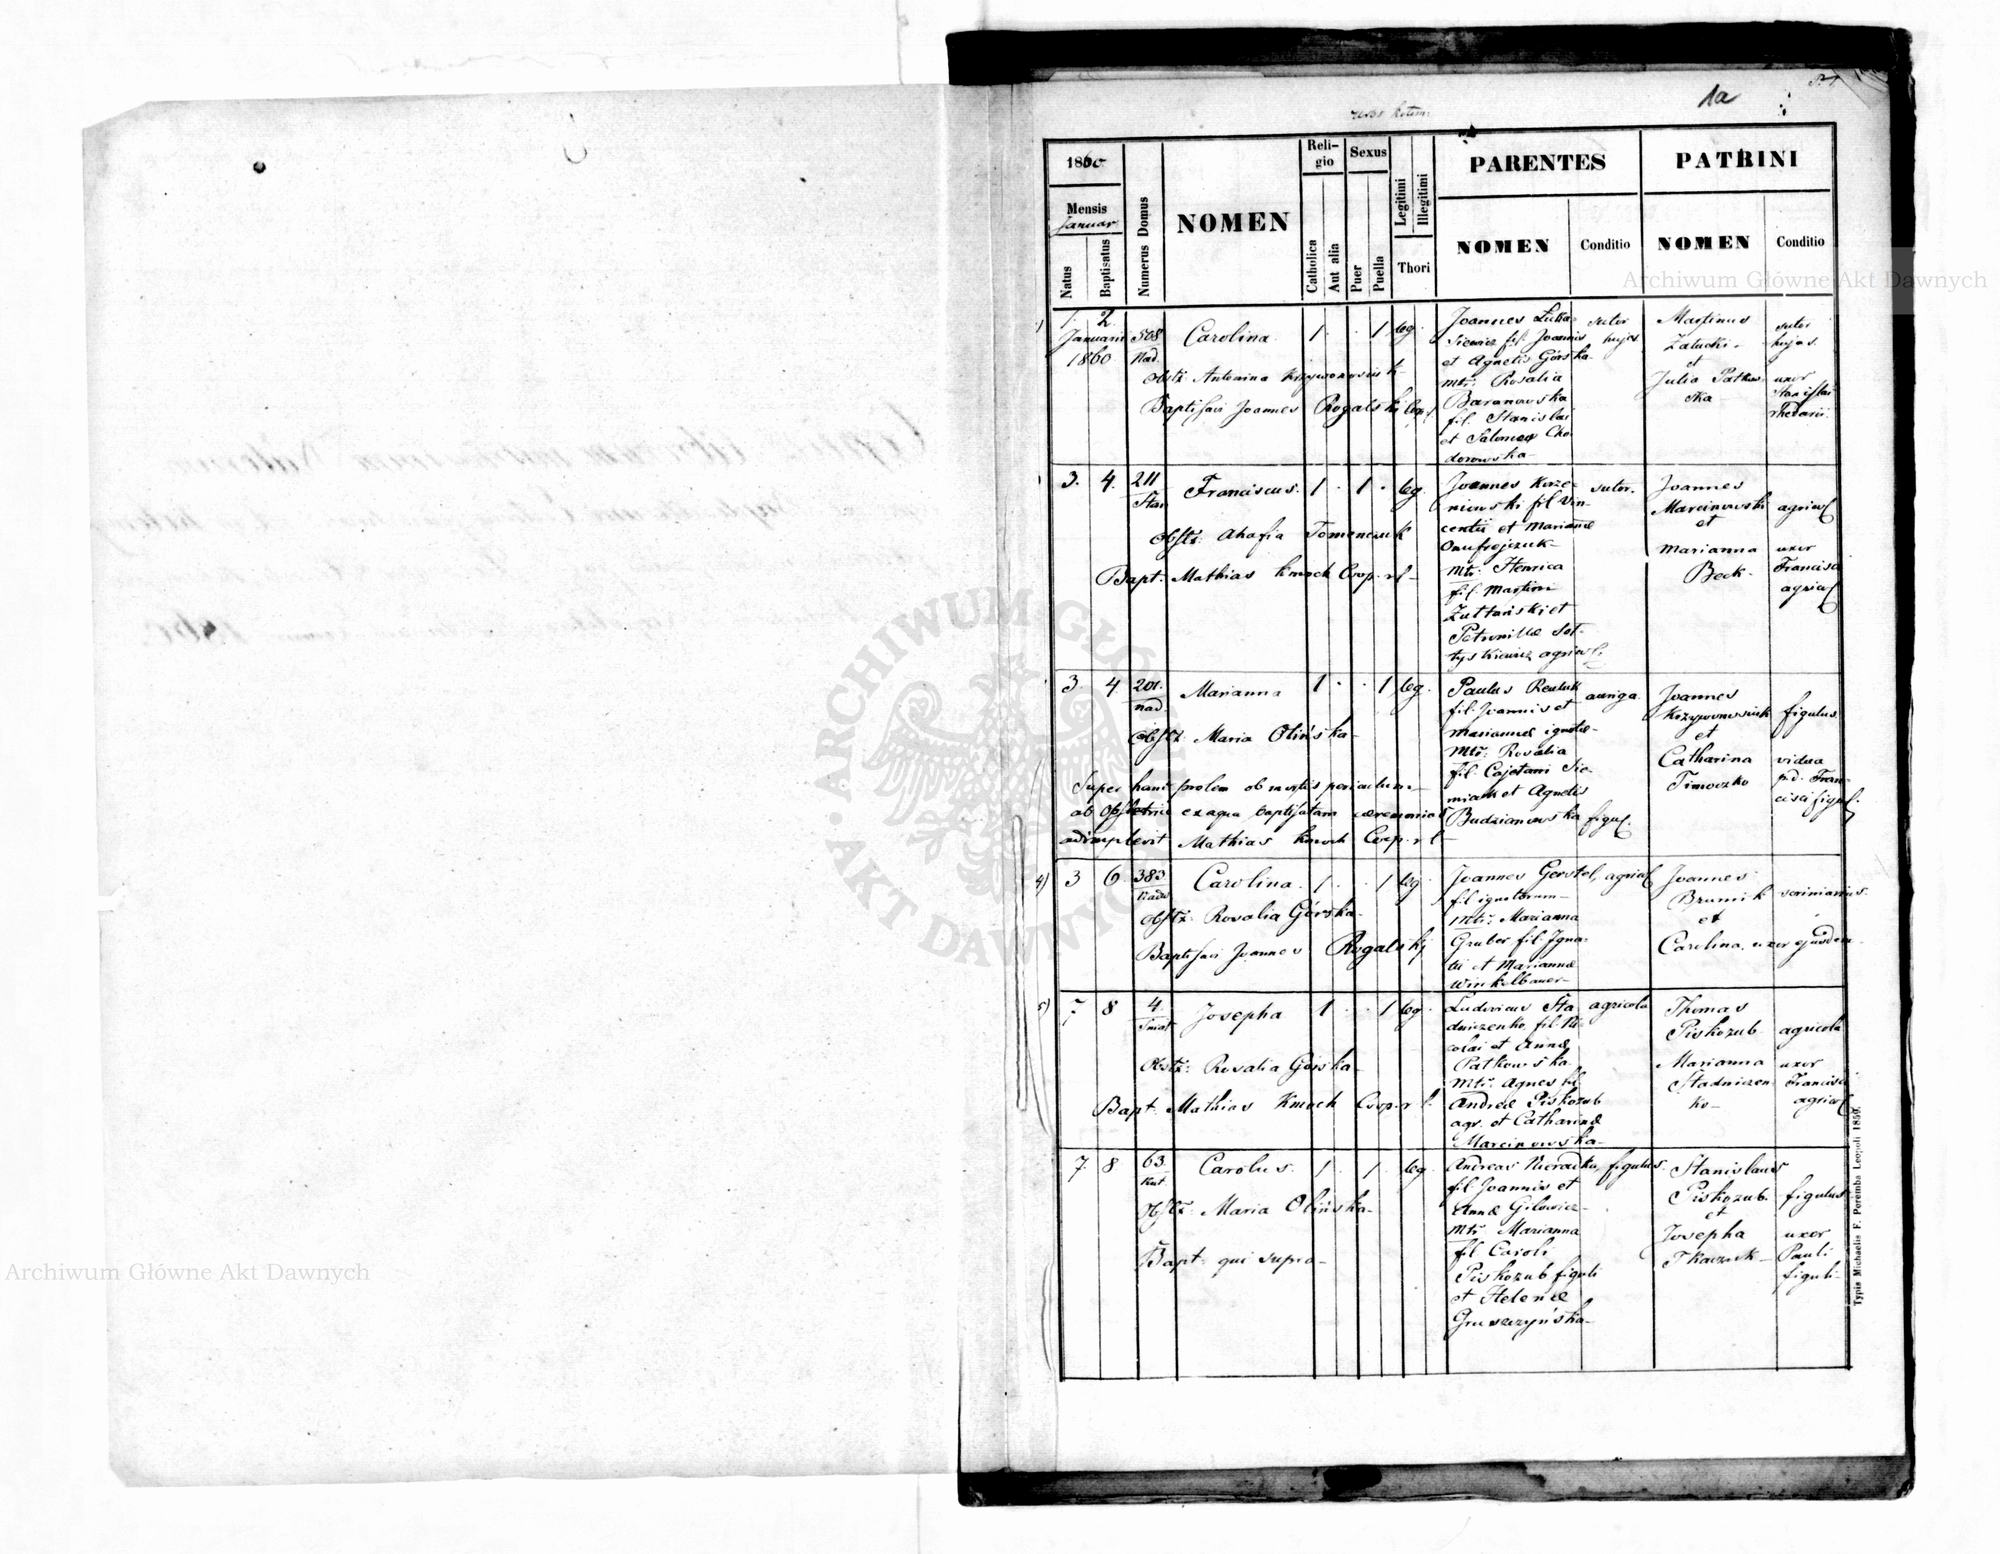 1a
Urbs Kotom:
1860
Mensis
Januar
Natus
Baptisatus
Numerus Domus
NOMEN
Religio
Catholica
Aut alia
Sexus
Puer
Puella
Legitimi
Illegitimi
Thori
PARENTES
NOMEN
Conditio
PATRINI
NOMEN
Conditio
1. 2.
Januarii
1860
508
Nad.
Carolina
1 . . 1 leg.
Obstr: Antonina
Baptisavi Joannes Rogalski Coop.
Joannes Łuka-
siewicz fil: Joannis
et Agnetis Górska-
Mtr: Rosalia
Baranowska
fil. Stanislai
et Salomeæ Cho-
dorowska-
sutor
hujas
Martinus
Załucki-
et
Julia Patkow-
ska-
sutor
hujas.
uxor
Stanislai
3. 4. 211
Franciscus. 1 . 1 . leg.
Obstr: Ahafia Tomenczuk
Bapt: Mathias Kmoch Coop. r l-
Joannes Korze-
niowski fil Vin-
centii et Mariannæ
Onufrejczuk-
Mtr: Henrica
fil. Martini
et
Petronillæ Soł-
tyskiewicz agricol:
sutor.
Joannes
Marcinowski
et
Marianna
Beck-
agricol
uxor
Francisci
agricol
3. 4 201.
nad.
Marianna 1 . . 1 leg.
Obstr: Maria Olińska-
Super hanc prolem ob mortis periculum-
ab Obstetrice ex aqua baptisatam ceremonias
adimplevit Mathias Kmoch Coop. r l-
Paulus
fil: Joannis et
Mariannæ ignotæ-
Mtr: Rosalia
fil: Cajetani Sie-
miak et Agnetis
Budzianowska figul.
auriga
Joannes
Krzywonosiuk
et
Catharina
Timoczko
figulus
vidua
p.d. Fran-
cisci figul.
4) 3 6 383
Nadw
Carolina. 1 . . 1 leg.
Obstr: Rosalia Górska-
Baptisavi Joannes Rogalskj
Joannes Gerstel, agricol
fil ignotorum-
Mtr: Marianna
Gruber fil: Igna-
tii et Mariannæ
Winkelbauer-
Joannes
Brumik
et
Carolina, uxor ejusdem
scriniarius.
5) 7 8 4
Śniat
Josepha 1 . . 1 leg.
Obstr: Rosalia Górska-
Bapt: Mathias Kmoch Coop. r l-
Ludovicus Sta-
dniczenko, fil: Ni-
colai et Annæ
Patkowska
Mtr: Agnes fil
Andreæ Piskozub
agr. et Catharinæ
Marcinowska-
agricola
Thomas
Piskozub
Marianna
Stadniczen-
ko-
agricola
uxor
Francisci
agricol
7. 8 63.
Kut
Carolus. 1 . 1 . leg.
Obstr: Maria Olińska-
Bapt: qui supra-
Andreas Nieradko, figulus.
fil: Joannis et
Annæ Gilowicz-
Mtr: Marianna
fil Caroli
Piskozub figuli
et Helenæ
Gruszczyńska-
Stanislaus
Piskozub.
et
Josepha
Tkaczuk-
figulus
uxor
Pauli
figuli-
Typis Michaelis F. Poremba Leopoli 1859.
Archiwum Główne Akt Dawnych
Archiwum Główne Akt Dawnych
ARCHIWUM GŁÓWNE
AKT DAWNYCH